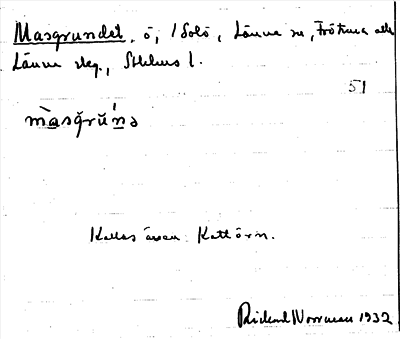 Masgrundet, ö, 1 Solö, Länna sn, Frötuna och
Länna skg., Sthlms l.
51
màsgrŭ´nə
Kallas även Kattörn.
Rickard Norrman 1932